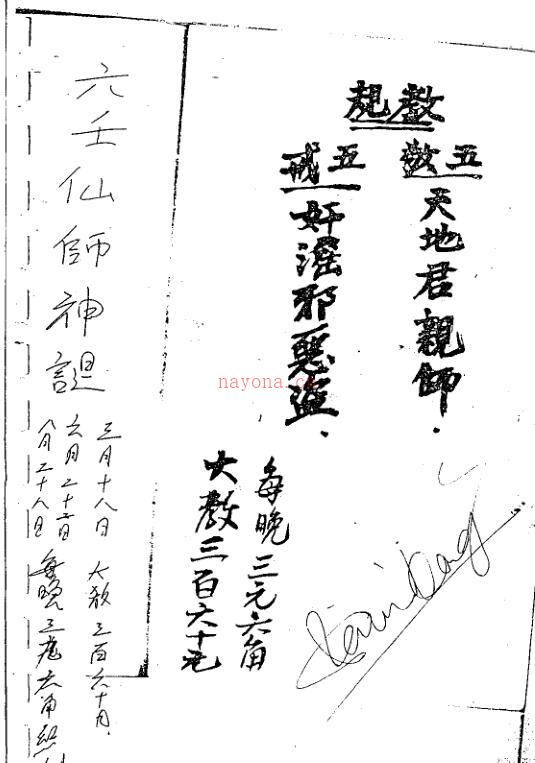 教規
五敬
天地君親師.
五戒
奸淫邪惡盜.
每晚三元六角
大教三百六十元
六壬仙師神誕
三月十八日
六月二十二日
八月二十八日
大教三百六十元.
每晚三元六角
nayona.c